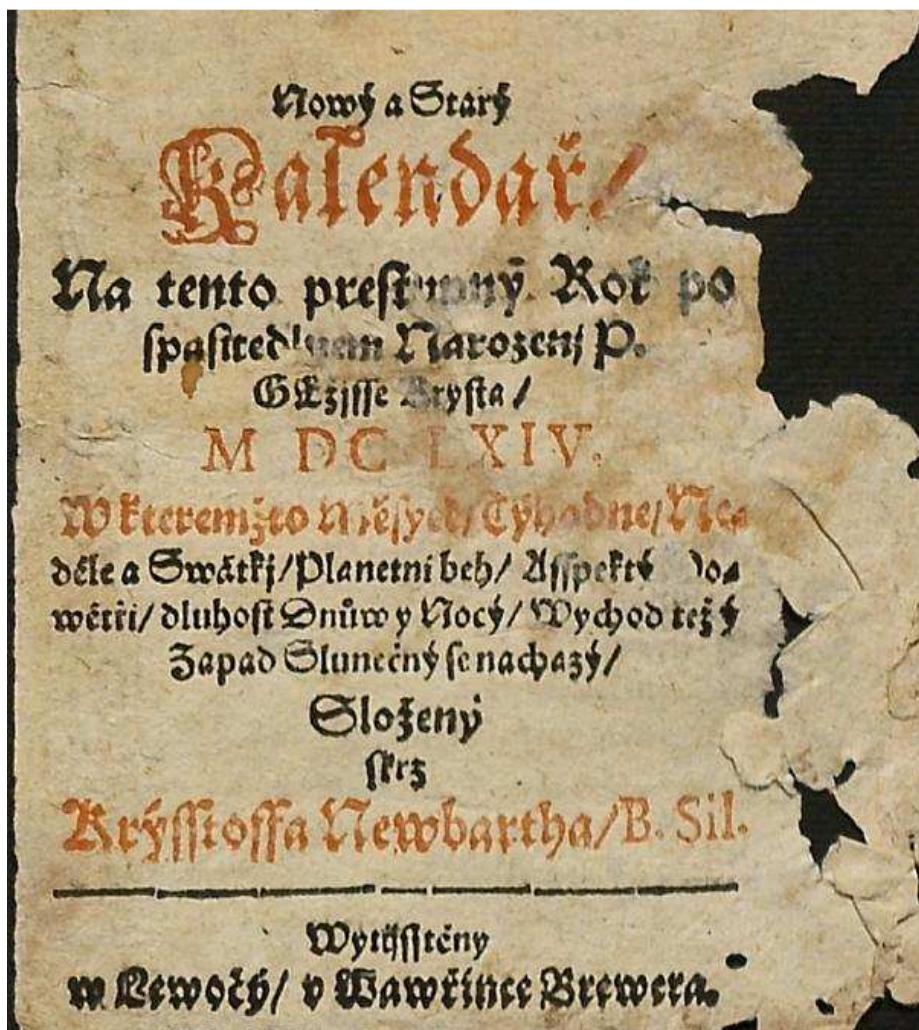 Nowý a Starý
Kalendař/
Na tento prestupný Rok po
spasitedlnem Narozenj P.
GEžjsse Krysta/
M DC LXIV.
W kteremžto Měsyce/ Tyhodne/ Ne⸗
děle a Swátkj/ Planetni beh/ Asspektý
wětři/ dluhost Dnůw y Nocý/ Wychod též ý
Zapad Slunečný se nachazý/
Složený
skrz
Krýsstoffa Newbartha/ B. Sil.
Wytisstěny
w Lewočý/ v Wawřince Brewera.